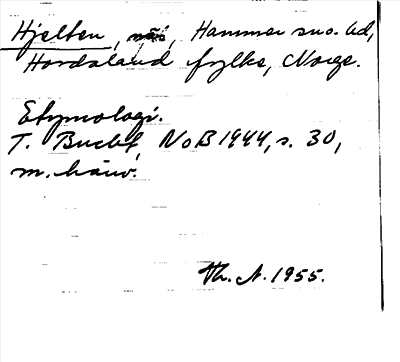 Hjelten, Hammer sno. ad,
Hordaland fylke, Norge.
Etymologi.
T. Bucht, NoB 1944, s. 30,
m. hänv.
Th. A. 1955.